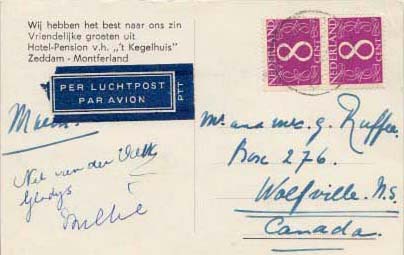 Wij hebben het best naar ons zin
Vriendelijke groeten uit
Hotel-Pension v.h. „'t Kegelhuis"
Zeddam - Montferland
NEDERLAND
8
CENT
NEDERLAND
8
CENT
PER LUCHTPOST
PAR AVION
PTT
Mr. and mrs. G. Ruffee
Box 276.
Wolfville. N.S.
Canada.
van der
Gladys